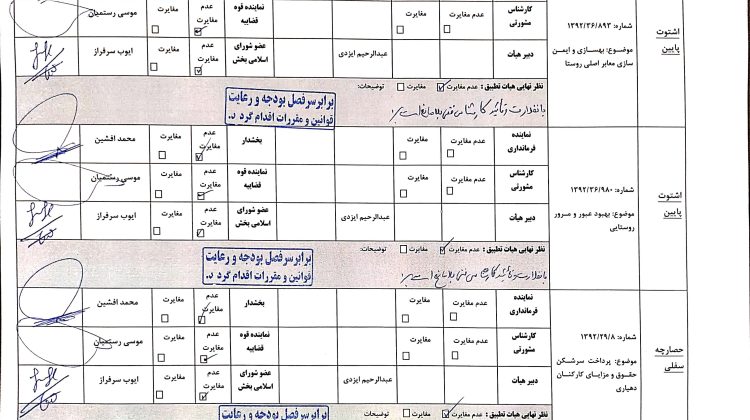 اشتوت پایین
شماره: ۱۳۹۲/۳۶/۸۹۳
موضوع: بهسازی و ایمن سازی معابر اصلی روستا
کارشناس مشورتی
عدم مغایرت
مغایرت
نماینده قوه قضاییه
عدم مغایرت
مغایرت
موسی رستمیان
دبیر هیأت
عبدالرحیم ایزدی
عضو شورای اسلامی بخش
عدم مغایرت
مغایرت
ایوب سرفراز
نظر نهایی هیات تطبیق : عدم مغایرت مغایرت توضیحات:
برابر سرفصل بودجه و رعایت
قوانین و مقررات اقدام گردد.
اشتوت پایین
شماره: ۱۳۹۲/۳۶/۹۸۰
موضوع: بهبود عبور و مرور روستایی
نماینده فرمانداری
عدم مغایرت
مغایرت
بخشدار
عدم مغایرت
مغایرت
محمد افشین
کارشناس مشورتی
عدم مغایرت
مغایرت
نماینده قوه قضاییه
عدم مغایرت
مغایرت
موسی رستمیان
دبیر هیأت
عبدالرحیم ایزدی
عضو شورای اسلامی بخش
عدم مغایرت
مغایرت
ایوب سرفراز
نظر نهایی هیات تطبیق : عدم مغایرت مغایرت توضیحات:
برابر سرفصل بودجه و رعایت
قوانین و مقررات اقدام گردد.
حصارچه سفلی
شماره: ۱۳۹۲/۲۹/۸
موضوع: پرداخت سرشکن حقوق و مزایای کارکنان دهیاری
نماینده فرمانداری
عدم مغایرت
مغایرت
بخشدار
عدم مغایرت
مغایرت
محمد افشین
کارشناس مشورتی
عدم مغایرت
مغایرت
نماینده قوه قضاییه
عدم مغایرت
مغایرت
موسی رستمیان
دبیر هیأت
عبدالرحیم ایزدی
عضو شورای اسلامی بخش
عدم مغایرت
مغایرت
ایوب سرفراز
نظر نهایی هیات تطبیق : عدم مغایرت مغایرت توضیحات:
برابر سرفصل بودجه و رعایت